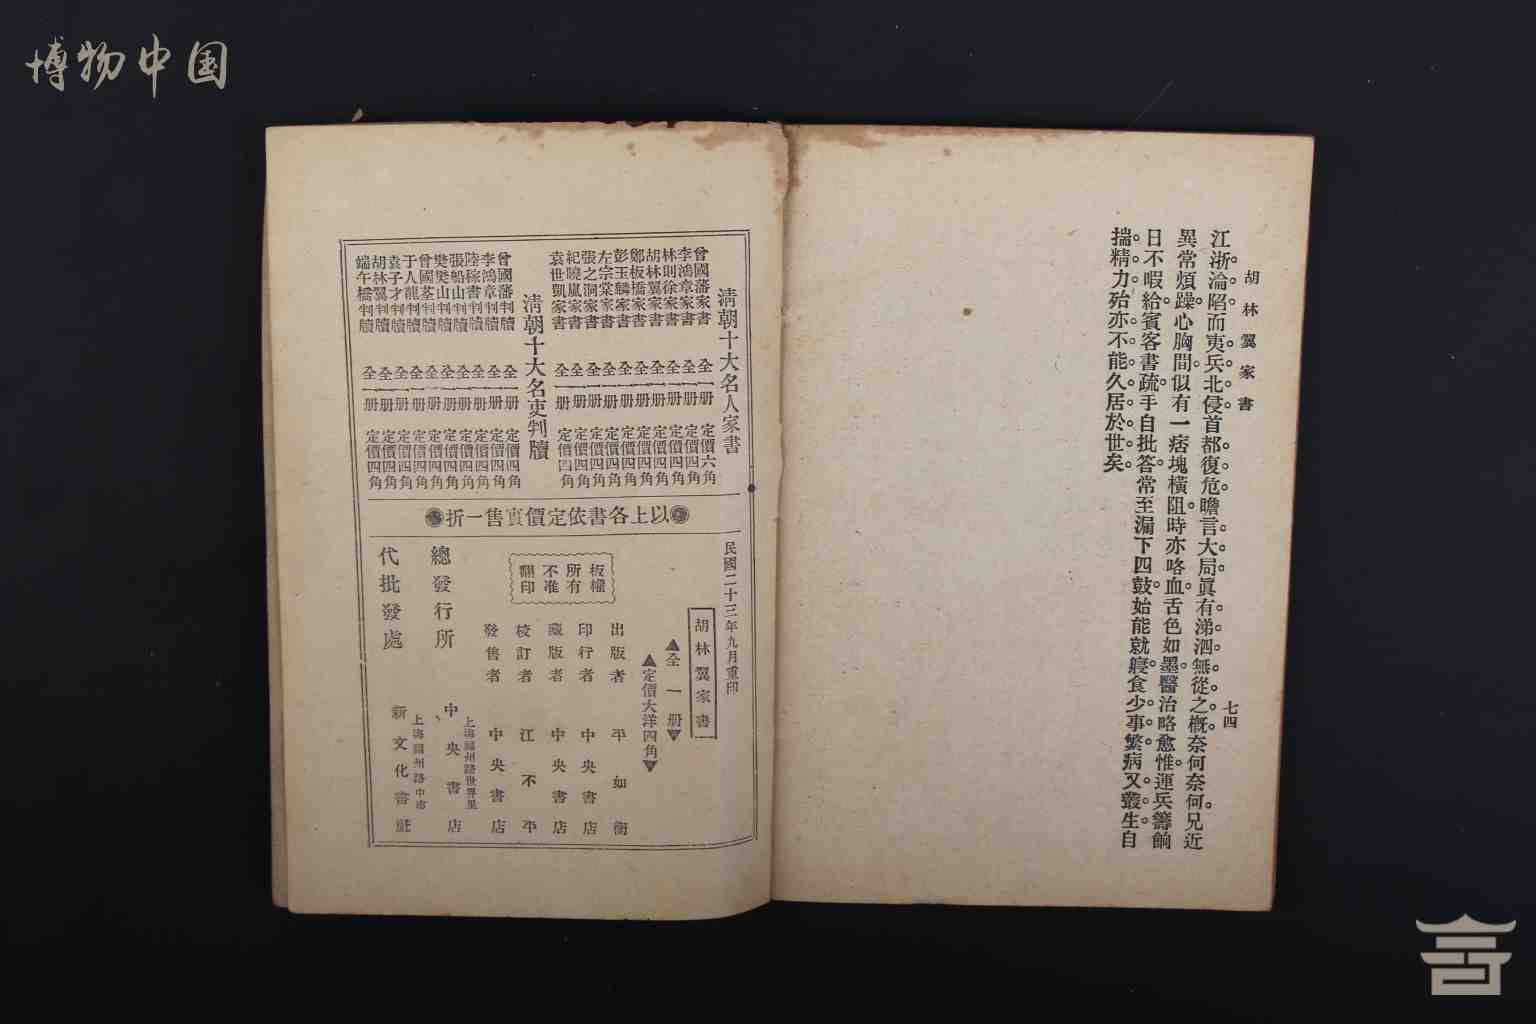 博物中国
胡林翼家書
七四
江浙淪陷而夷兵北侵首都復危瞻言大局眞有涕泗無從之槪奈何奈何兄近
異常煩躁心胸間似有一痞塊橫阻時亦咯血舌色如墨醫治略愈惟運兵籌餉
日不暇給賓客書疏手自批答常至漏下四鼓始能就寢食少事繁病又叢生自
揣精力殆亦不能久居於世矣
清朝十大名人家書
曾國藩家書 全一册 定價六角
李鴻章家書 全一册 定價四角
林則徐家書 全一册 定價四角
胡林翼家書 全一册 定價四角
鄭板橋家書 全一册 定價四角
彭玉麟家書 全一册 定價四角
左宗棠家書 全一册 定價四角
張之洞家書 全一册 定價四角
紀曉嵐家書 全一册 定價四角
袁世凱家書 全一册 定價四角
清朝十大名吏判牘
曾國藩判牘 全一册 定價四角
李鴻章判牘 全一册 定價四角
陸稼書判牘 全一册 定價四角
張船山判牘 全一册 定價四角
樊樊山判牘 全一册 定價四角
曾國荃判牘 全一册 定價四角
于人龍判牘 全一册 定價四角
袁子才判牘 全一册 定價四角
胡林翼判牘 全一册 定價四角
端午橋判牘 全一册 定價四角
以上各書依定價實售一折
民國二十三年九月重印
胡林翼家書
全一册
定價大洋四角
板權
所有
不准
翻印
出版者 平如衡
印行者 中央書店
藏版者 中央書店
校訂者 江不平
發售者 中央書店
總發行所
上海福州路世界里
中央書店
代批發處
上海福州路中市
新文化書社